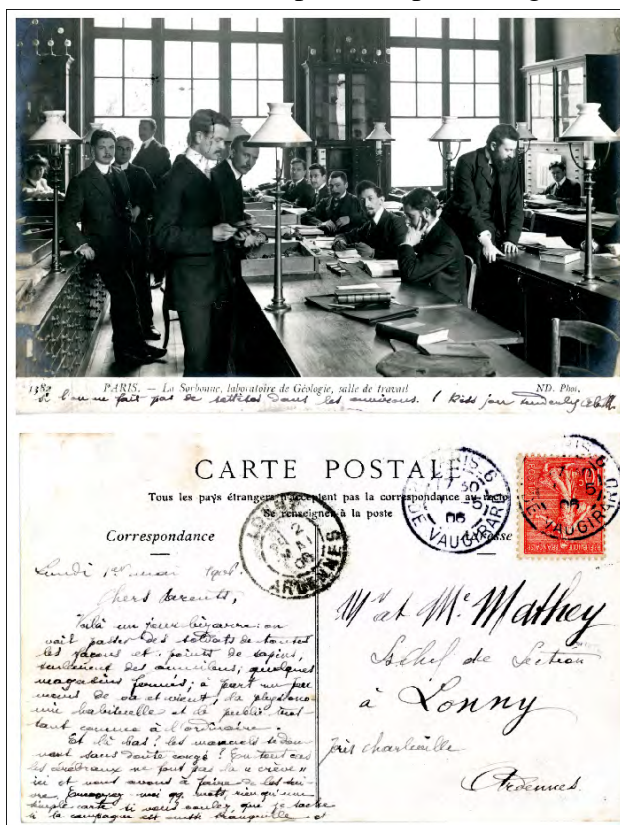 1382 PARIS. — La Sorbonne, laboratoire de Géologie, salle de travail ND. Phot.
si l'on ne fait pas de dans les environs. I kiss you
CARTE POSTALE
Tous les pays étrangers n'acceptent pas la correspondance au recto
Se renseigner à la poste
Correspondance
Adresse
PARIS. 6
RUE VAUGIRARD
ARDENNES
Lundi 1er mai
Chers Parents,
Voilà un jour bizarre : on
voit passer des soldats de toutes
les façons et points de sapins,
seulement des omnibus; quelques
magasins fermés; à part un peu
moins de va et vient, la physiono
mie habituelle et de public tout
tant comme à l'ordinaire.
Et là bas? les manuels se don
nent sans doute congé? En tout cas
les cérébraux ne font pas la "crève"
ici et nous avons à faire
vre. Envoyez-moi qq. mots rien qu'une
simple carte si vous voulez que je sache
si la campagne est tranquille et
Mr et Me Mathey
de Section
à Lonny
près Charleville
Ardennes.